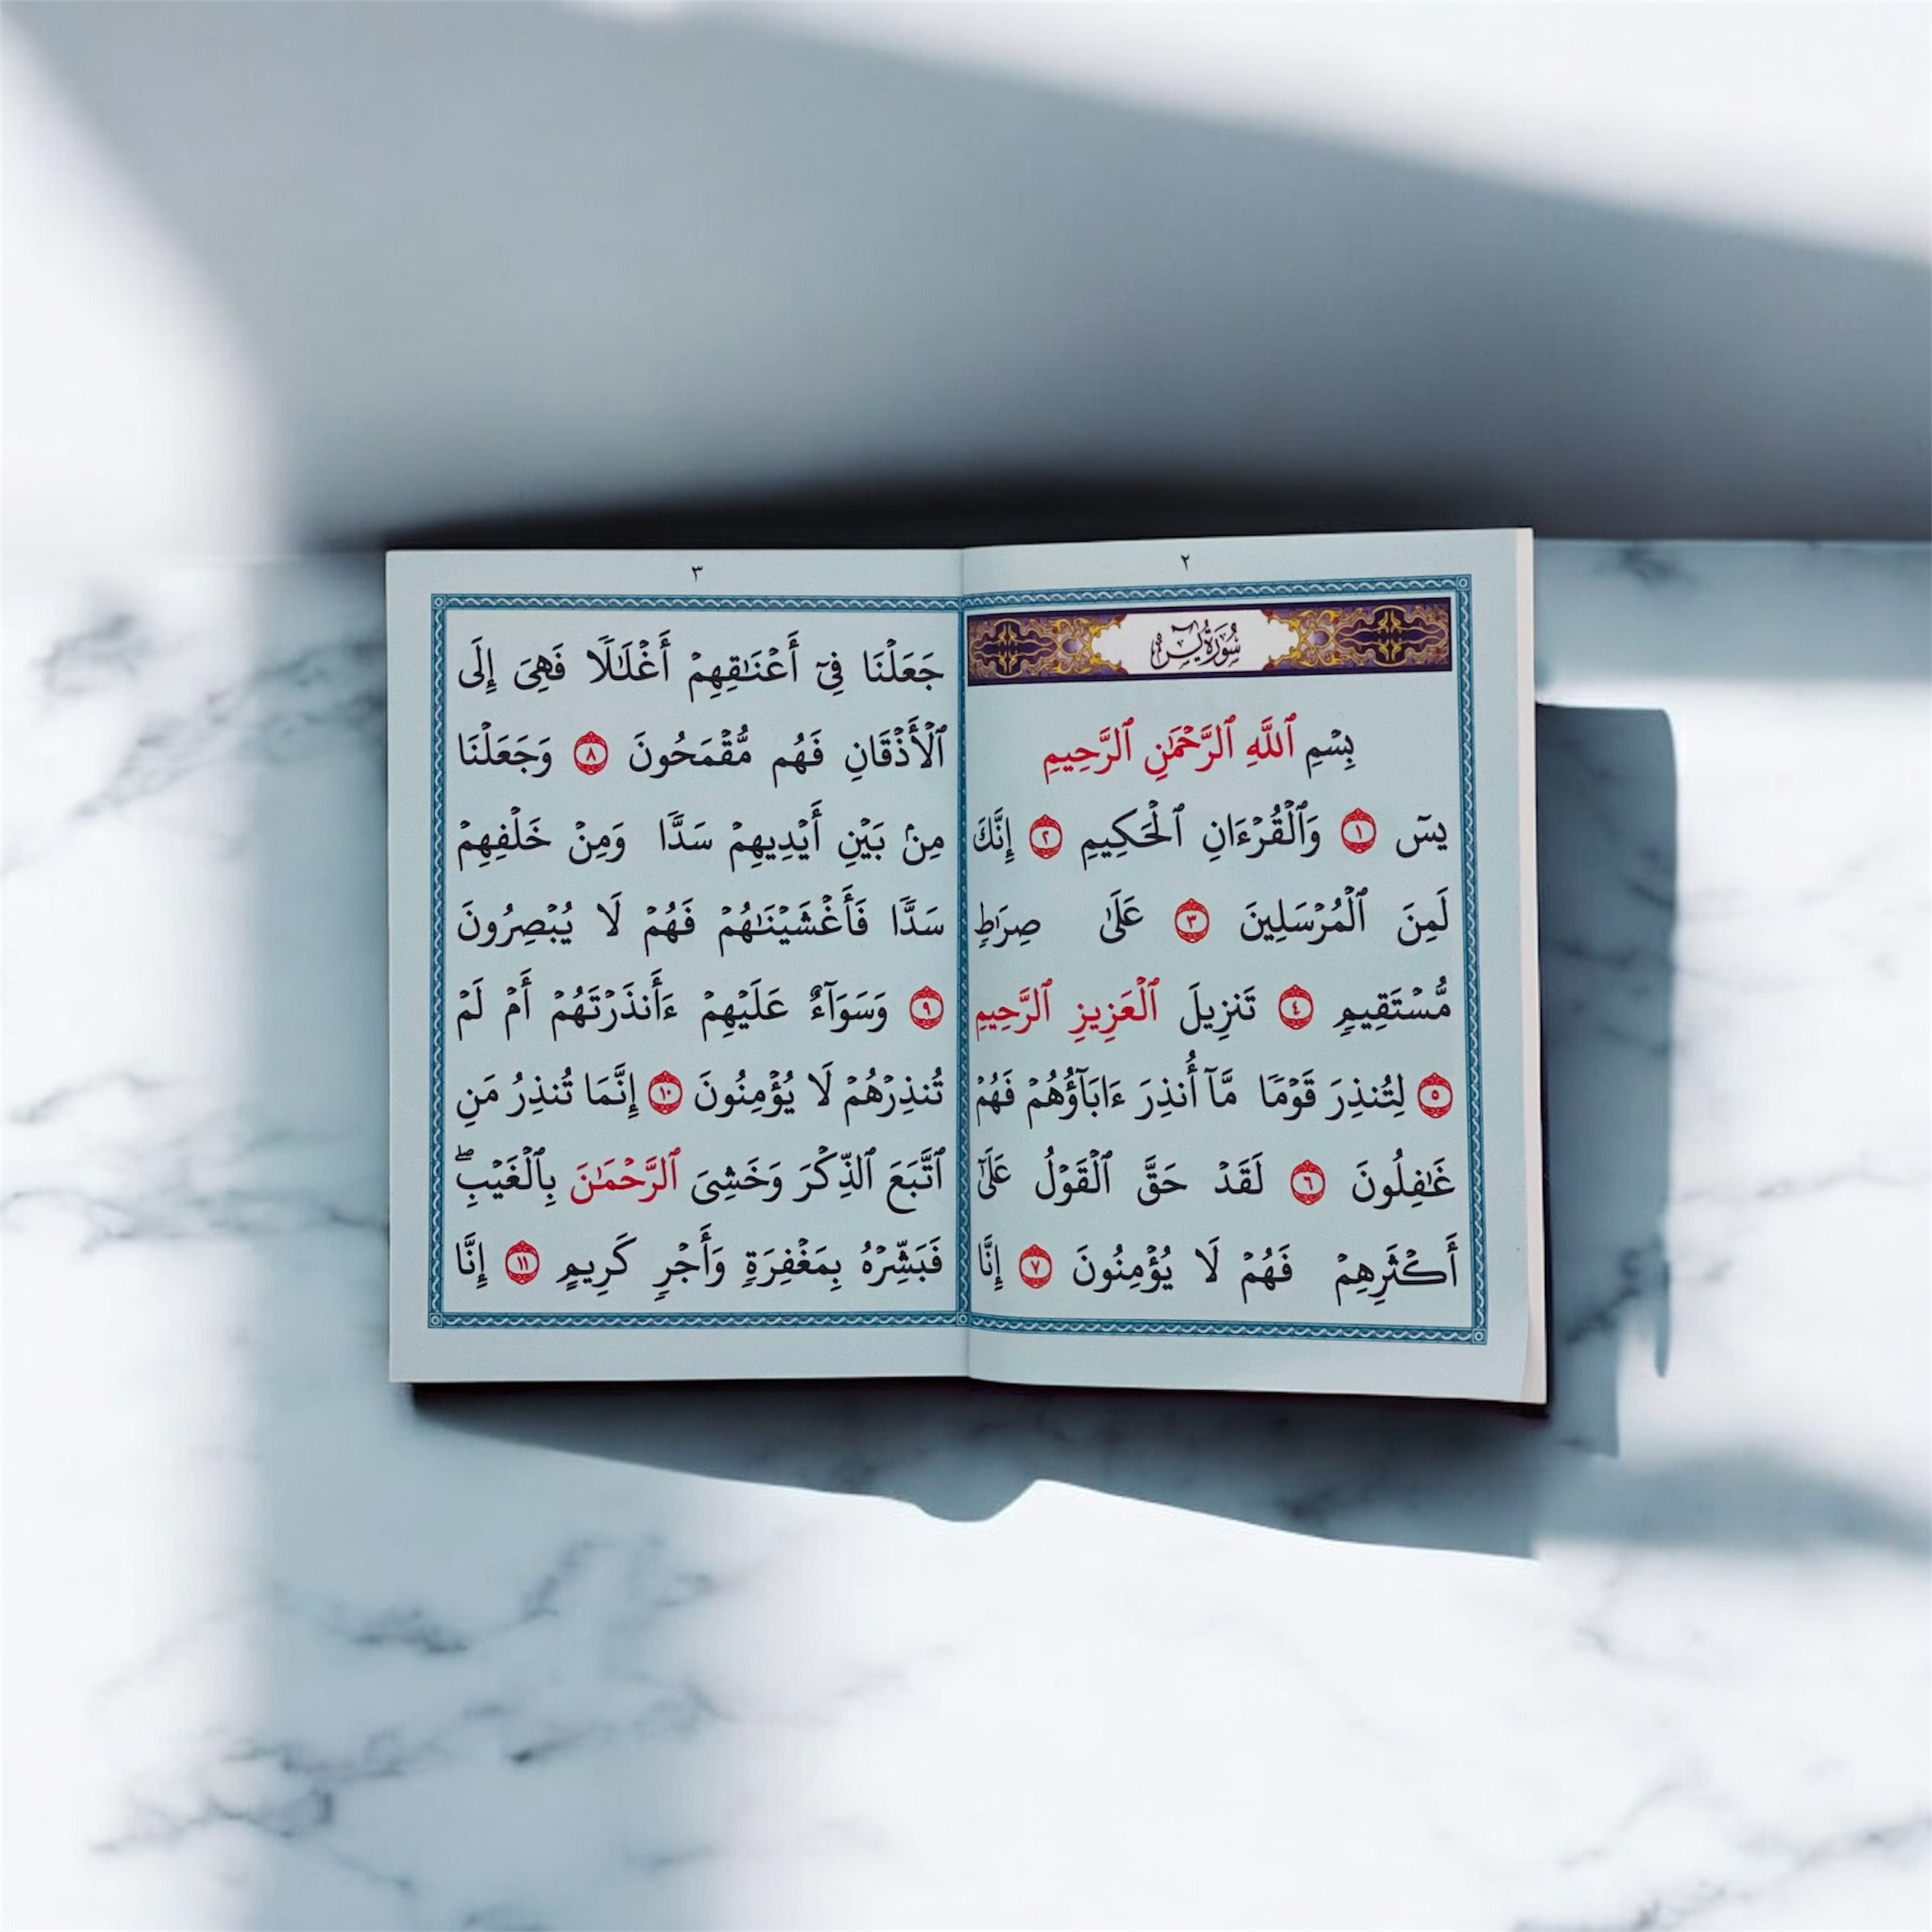 ٢
سُورَةُ يسٓ
بِسْمِ ٱللَّهِ ٱلرَّحْمَٰنِ ٱلرَّحِيمِ
يسٓ ١ وَٱلْقُرْءَانِ ٱلْحَكِيمِ ٢ إِنَّكَ
لَمِنَ ٱلْمُرْسَلِينَ ٣ عَلَىٰ صِرَٰطٍ
مُّسْتَقِيمٍ ٤ تَنزِيلَ ٱلْعَزِيزِ ٱلرَّحِيمِ
٥ لِتُنذِرَ قَوْمًا مَّآ أُنذِرَ ءَابَآؤُهُمْ فَهُمْ
غَٰفِلُونَ ٦ لَقَدْ حَقَّ ٱلْقَوْلُ عَلَىٰٓ
أَكْثَرِهِمْ فَهُمْ لَا يُؤْمِنُونَ ٧ إِنَّا
٣
جَعَلْنَا فِىٓ أَعْنَٰقِهِمْ أَغْلَٰلًا فَهِىَ إِلَى
ٱلْأَذْقَانِ فَهُم مُّقْمَحُونَ ٨ وَجَعَلْنَا
مِنۢ بَيْنِ أَيْدِيهِمْ سَدًّا وَمِنْ خَلْفِهِمْ
سَدًّا فَأَغْشَيْنَٰهُمْ فَهُمْ لَا يُبْصِرُونَ
٩ وَسَوَآءٌ عَلَيْهِمْ ءَأَنذَرْتَهُمْ أَمْ لَمْ
تُنذِرْهُمْ لَا يُؤْمِنُونَ ١٠ إِنَّمَا تُنذِرُ مَنِ
ٱتَّبَعَ ٱلذِّكْرَ وَخَشِىَ ٱلرَّحْمَٰنَ بِٱلْغَيْبِ ۖ
فَبَشِّرْهُ بِمَغْفِرَةٍ وَأَجْرٍ كَرِيمٍ ١١ إِنَّا